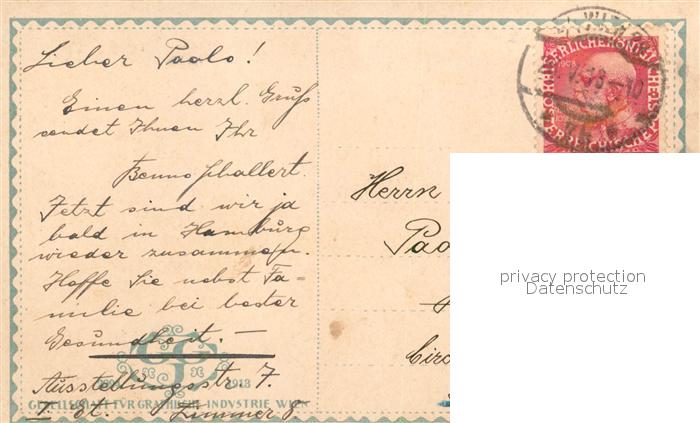 Lieber Paolo!
Einen herzl. Gruß
sendet Ihnen Ihr
Benno Schallert.
Jetzt sind wir ja
bald in Hamburg
wieder zusammen.
Hoffe Sie nebst Fa-
milie bei bester
Gesundheit. —
Ausstellungsstr. 7.
I. St. Zimmer 8
1913
GESELLSCHAFT FÜR GRAPHISCHE INDVSTRIE WIEN
WIEN
1908
Herrn
Circ
privacy protection
Datenschutz